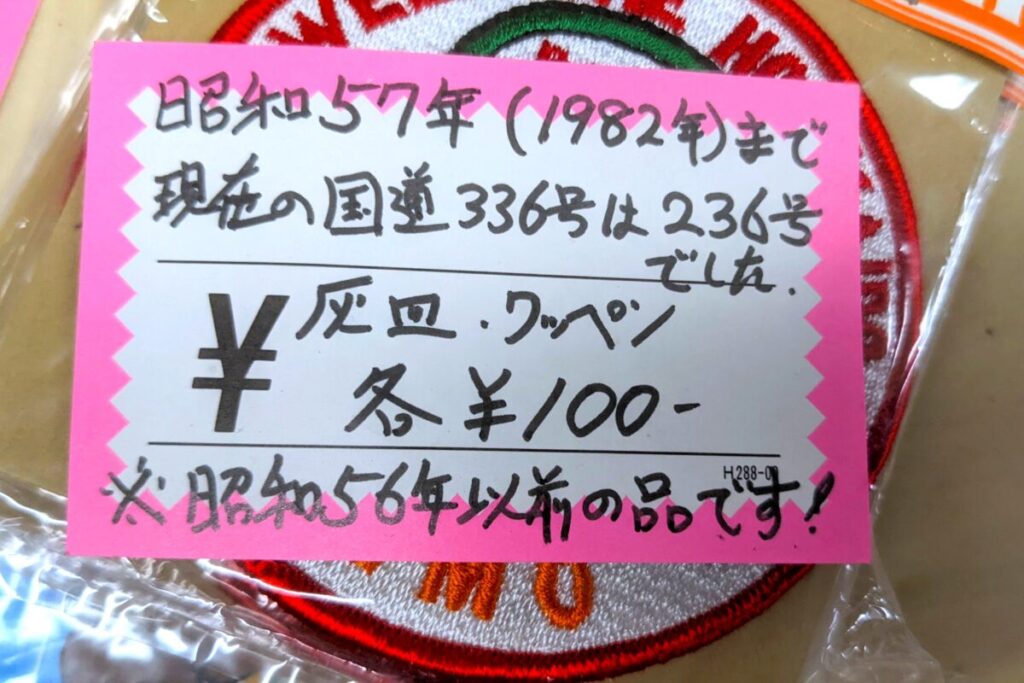 昭和57年(1982年)まで
現在の国道336号は236号
でした.
¥ 灰皿・ワッペン
各¥100-
H288-0
※昭和56年以前の品です!